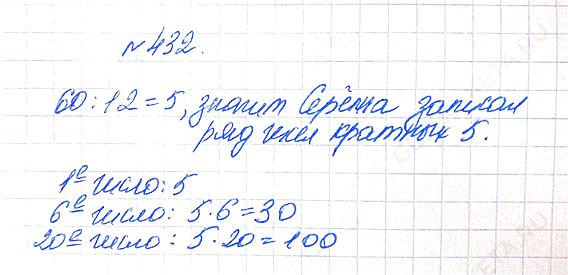 №432.
60:12=5, значит Серёжа записал
ряд чисел кратных 5.
1е число: 5
6е число: 5·6=30
20е число: 5·20=100